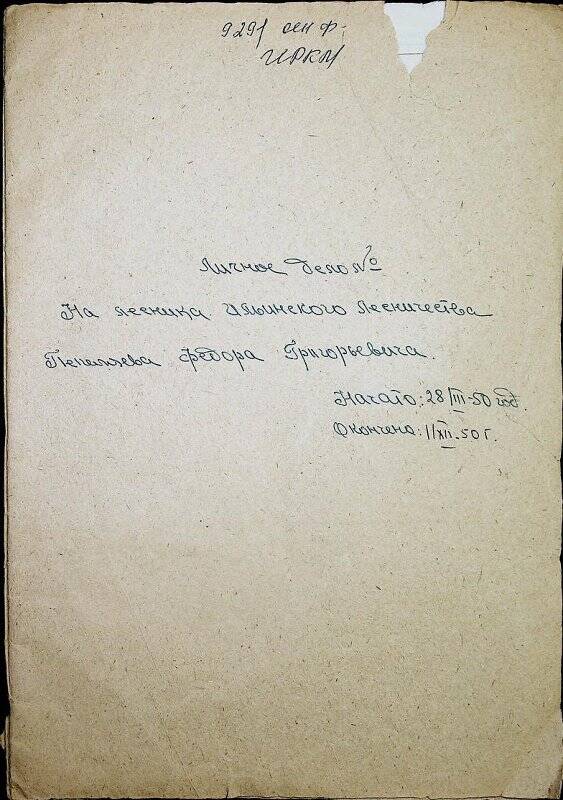 9291 осн ф.
ИРКМ
Личное дело №
На лесника Ильинского лесничества
Пепеляева Федора Григорьевича.
Начато: 28/III-50 год.
Окончено: 11/XII-50 г.